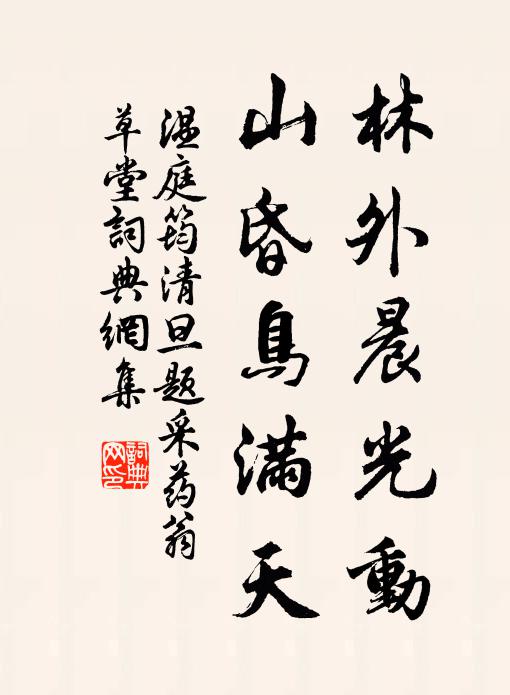 林外晨光動
山昏鳥满天
温庭筠清旦题采药翁
草堂詞典網集
詞典网印